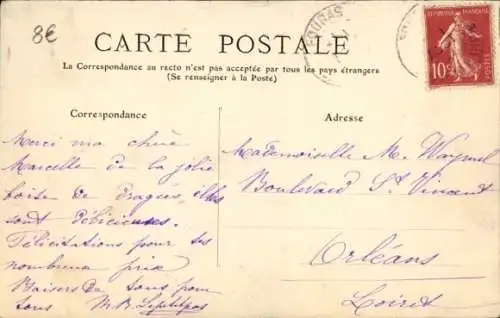 8€
CARTE POSTALE
La Correspondance au recto n'est pas acceptée par tous les pays étrangers
(Se renseigner à la Poste)
RÉPUBLIQUE FRANÇAISE
10c
POSTES
Correspondance
Adresse
Merci ma chère
Marcelle de la jolie
boîte de dragées, elles
sont délicieuses.
Félicitations pour tes
nombreux prix
Baisers de tous pour
tous M.R.
Mademoiselle M.
Boulevard St Vincent
Orléans
Loiret